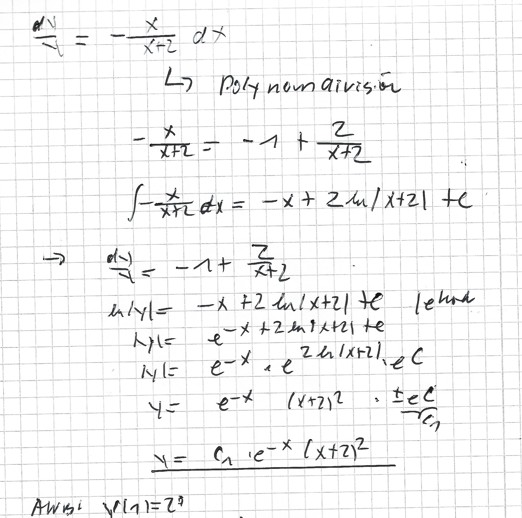 dy/y = - x/(x+2) dx
↳ Polynomdivision
- x/(x+2) = -1 + 2/(x+2)
∫ - x/(x+2) dx = -x + 2 ln|x+2| + c
→ dy/y = -1 + 2/(x+2)
ln|y| = -x + 2 ln|x+2| + c
|y| = e^(-x + 2 ln|x+2| + c)
|y| = e^(-x) · e^(2 ln|x+2|) · e^C
y = e^(-x) (x+2)^2 · ±e^C
C₁
y = C₁ · e^(-x) (x+2)^2
AWB: y(1) =